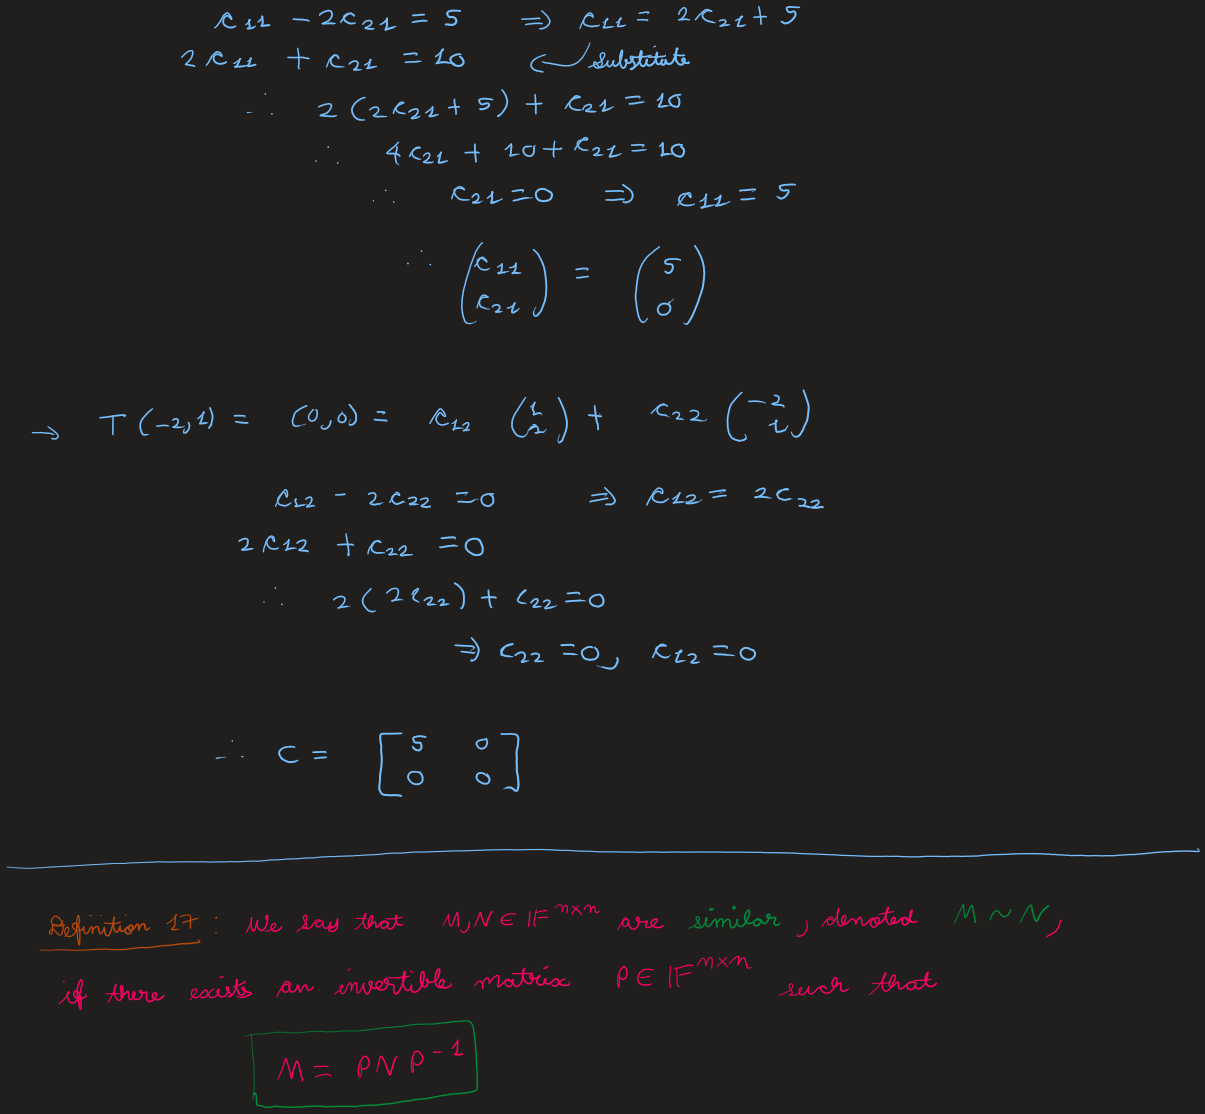 c₁₁ - 2c₂₁ = 5 ⇒ c₁₁ = 2c₂₁ + 5
2c₁₁ + c₂₁ = 10 substitute
∴ 2(2c₂₁ + 5) + c₂₁ = 10
∴ 4c₂₁ + 10 + c₂₁ = 10
∴ c₂₁ = 0 ⇒ c₁₁ = 5
∴ (c₁₁ c₂₁) = (5 0)
→ T(-2,1) = (0,0) = c₁₂ (1 2) + c₂₂ (-2 1)
c₁₂ - 2c₂₂ = 0 ⇒ c₁₂ = 2c₂₂
2c₁₂ + c₂₂ = 0
∴ 2(2c₂₂) + c₂₂ = 0
⇒ c₂₂ = 0, c₁₂ = 0
∴ C = [5 0
0 0]
Definition 17 : We say that M,N ∈ 𝔽ⁿˣⁿ are similar, denoted M ~ N,
if there exists an invertible matrix P ∈ 𝔽ⁿˣⁿ such that
M = PNP⁻¹